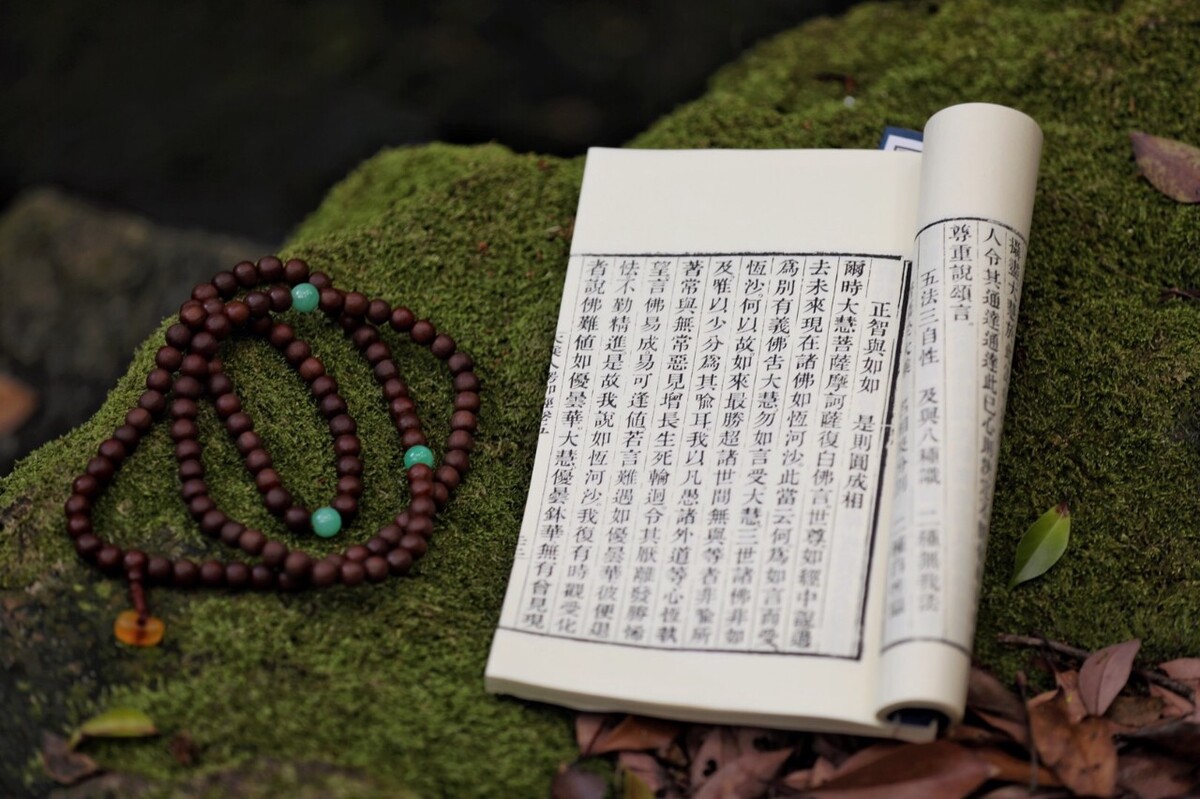 人令其通達通達此已心則
尊重說頌言。
五法三自性　及與八種識　二種無我法
正智與如如　是則圓成相
爾時大慧菩薩摩訶薩復白佛言。世尊如經中說過
去未來現在諸佛如恆河沙。此當云何爲如言而受
爲別有義佛告大慧勿如言受大慧。三世諸佛非如
恆沙。何以故如來最勝超諸世間無與等者非喻所
及。唯以少分爲其喻耳我以凡愚諸外道等心恆執
著常與無常惡見增長生死輪迴令其厭離發勝悕
望言佛易成易可逢值若言難遇如優曇華彼便退
怯不勤精進是故我說如恆河沙我復有時觀受化
者說佛難值如優曇華。大慧優曇鉢華無有曾見現